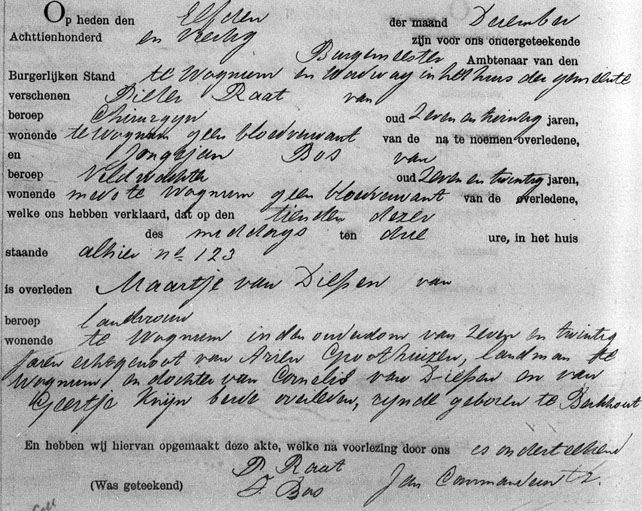 Op heden den Elfden der maand December
Achttienhonderd en Veertig zijn voor ons ondergeteekende
Burgemeester Ambtenaar van den
Burgerlijken Stand te Wognum en Wadway in het huis der gemeente
verschenen Pieter Raat van
beroep Chirurgyn oud Zeven en twintig jaren,
wonende te Wognum geen bloedverwant van de na te noemen overledene,
en Jongejan Bos van
beroep Veldwachter oud Zeven en twintig jaren,
wonende mede te Wognum geen bloedverwant van de overledene,
welke ons hebben verklaard, dat op den tienden dezer
des middags ten drie ure, in het huis
staande alhier no 123
is overleden Maartje van Diepen van
beroep landvrouw
wonende te Wognum in den ouderdom van Zeven en twintig
jaren echtgenoot van Arien Groothuizen, landman te
Wognum en dochter van Cornelis van Diepen en van
Geertje Knijn beide overleden, zynde geboren te Berkhout
En hebben wij hiervan opgemaakt deze akte, welke na voorlezing door ons is onderteekend
P. Raat
(Was geteekend) J. Bos Jan Commandeur